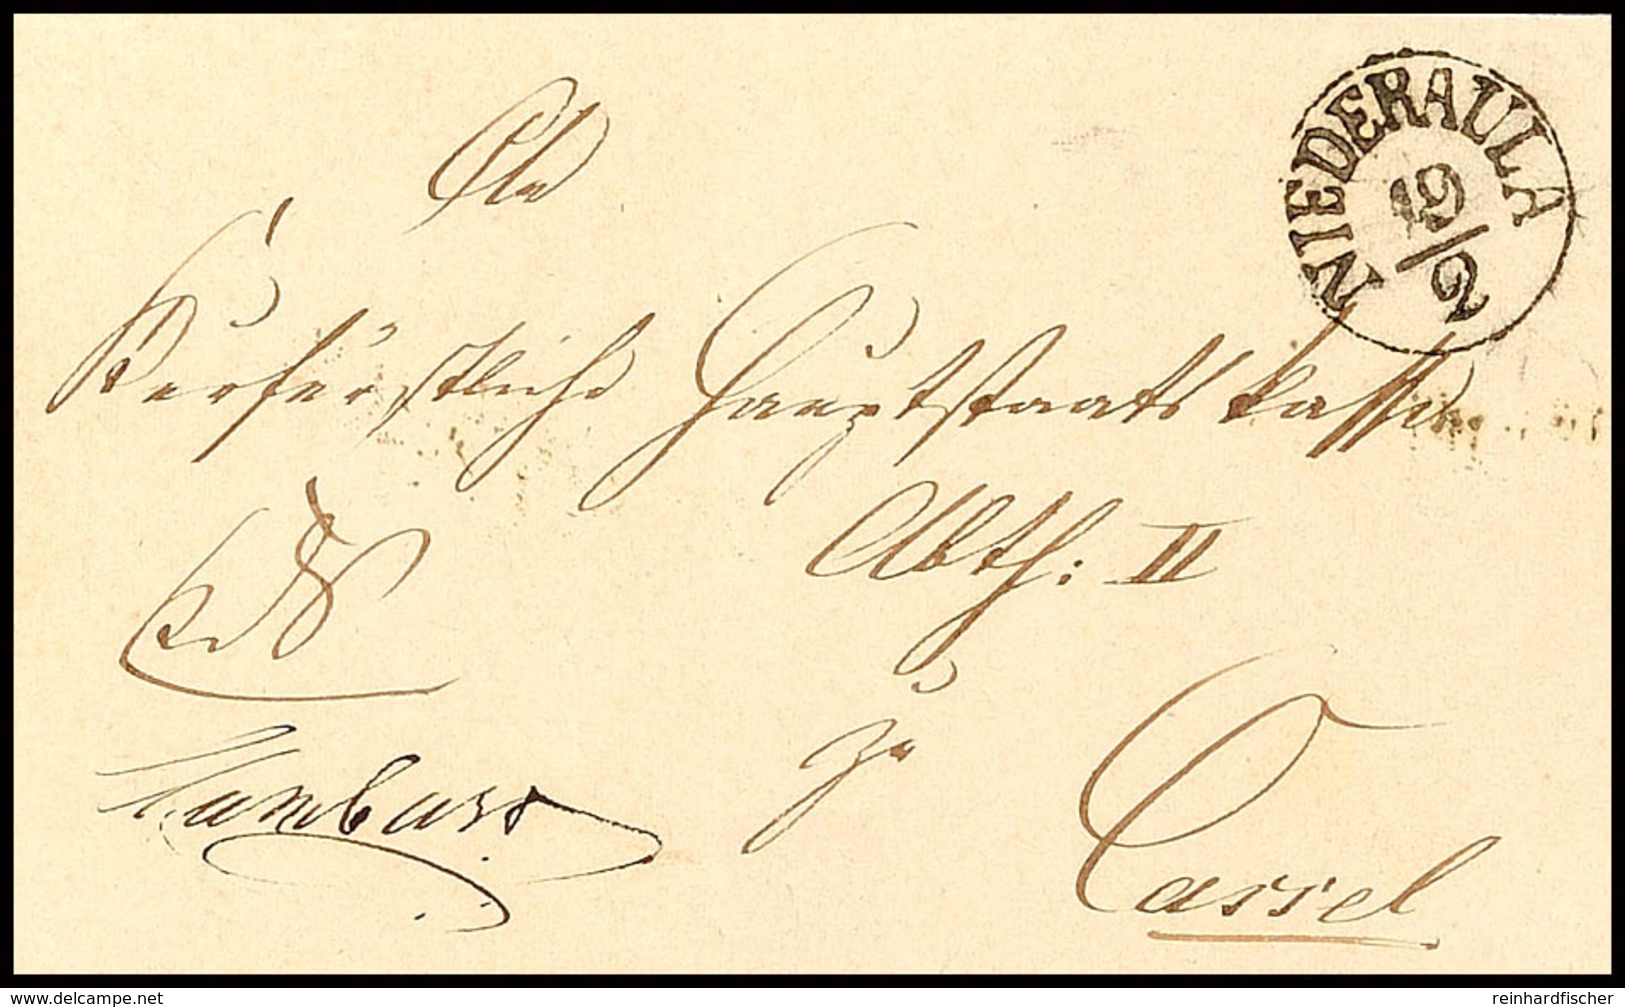 An
NIEDERAULA
19/2
Kurfürstliche Hauptstaatskasse
Abth: II
zu
Cassel
www.delcampe.net
reinhardfischer